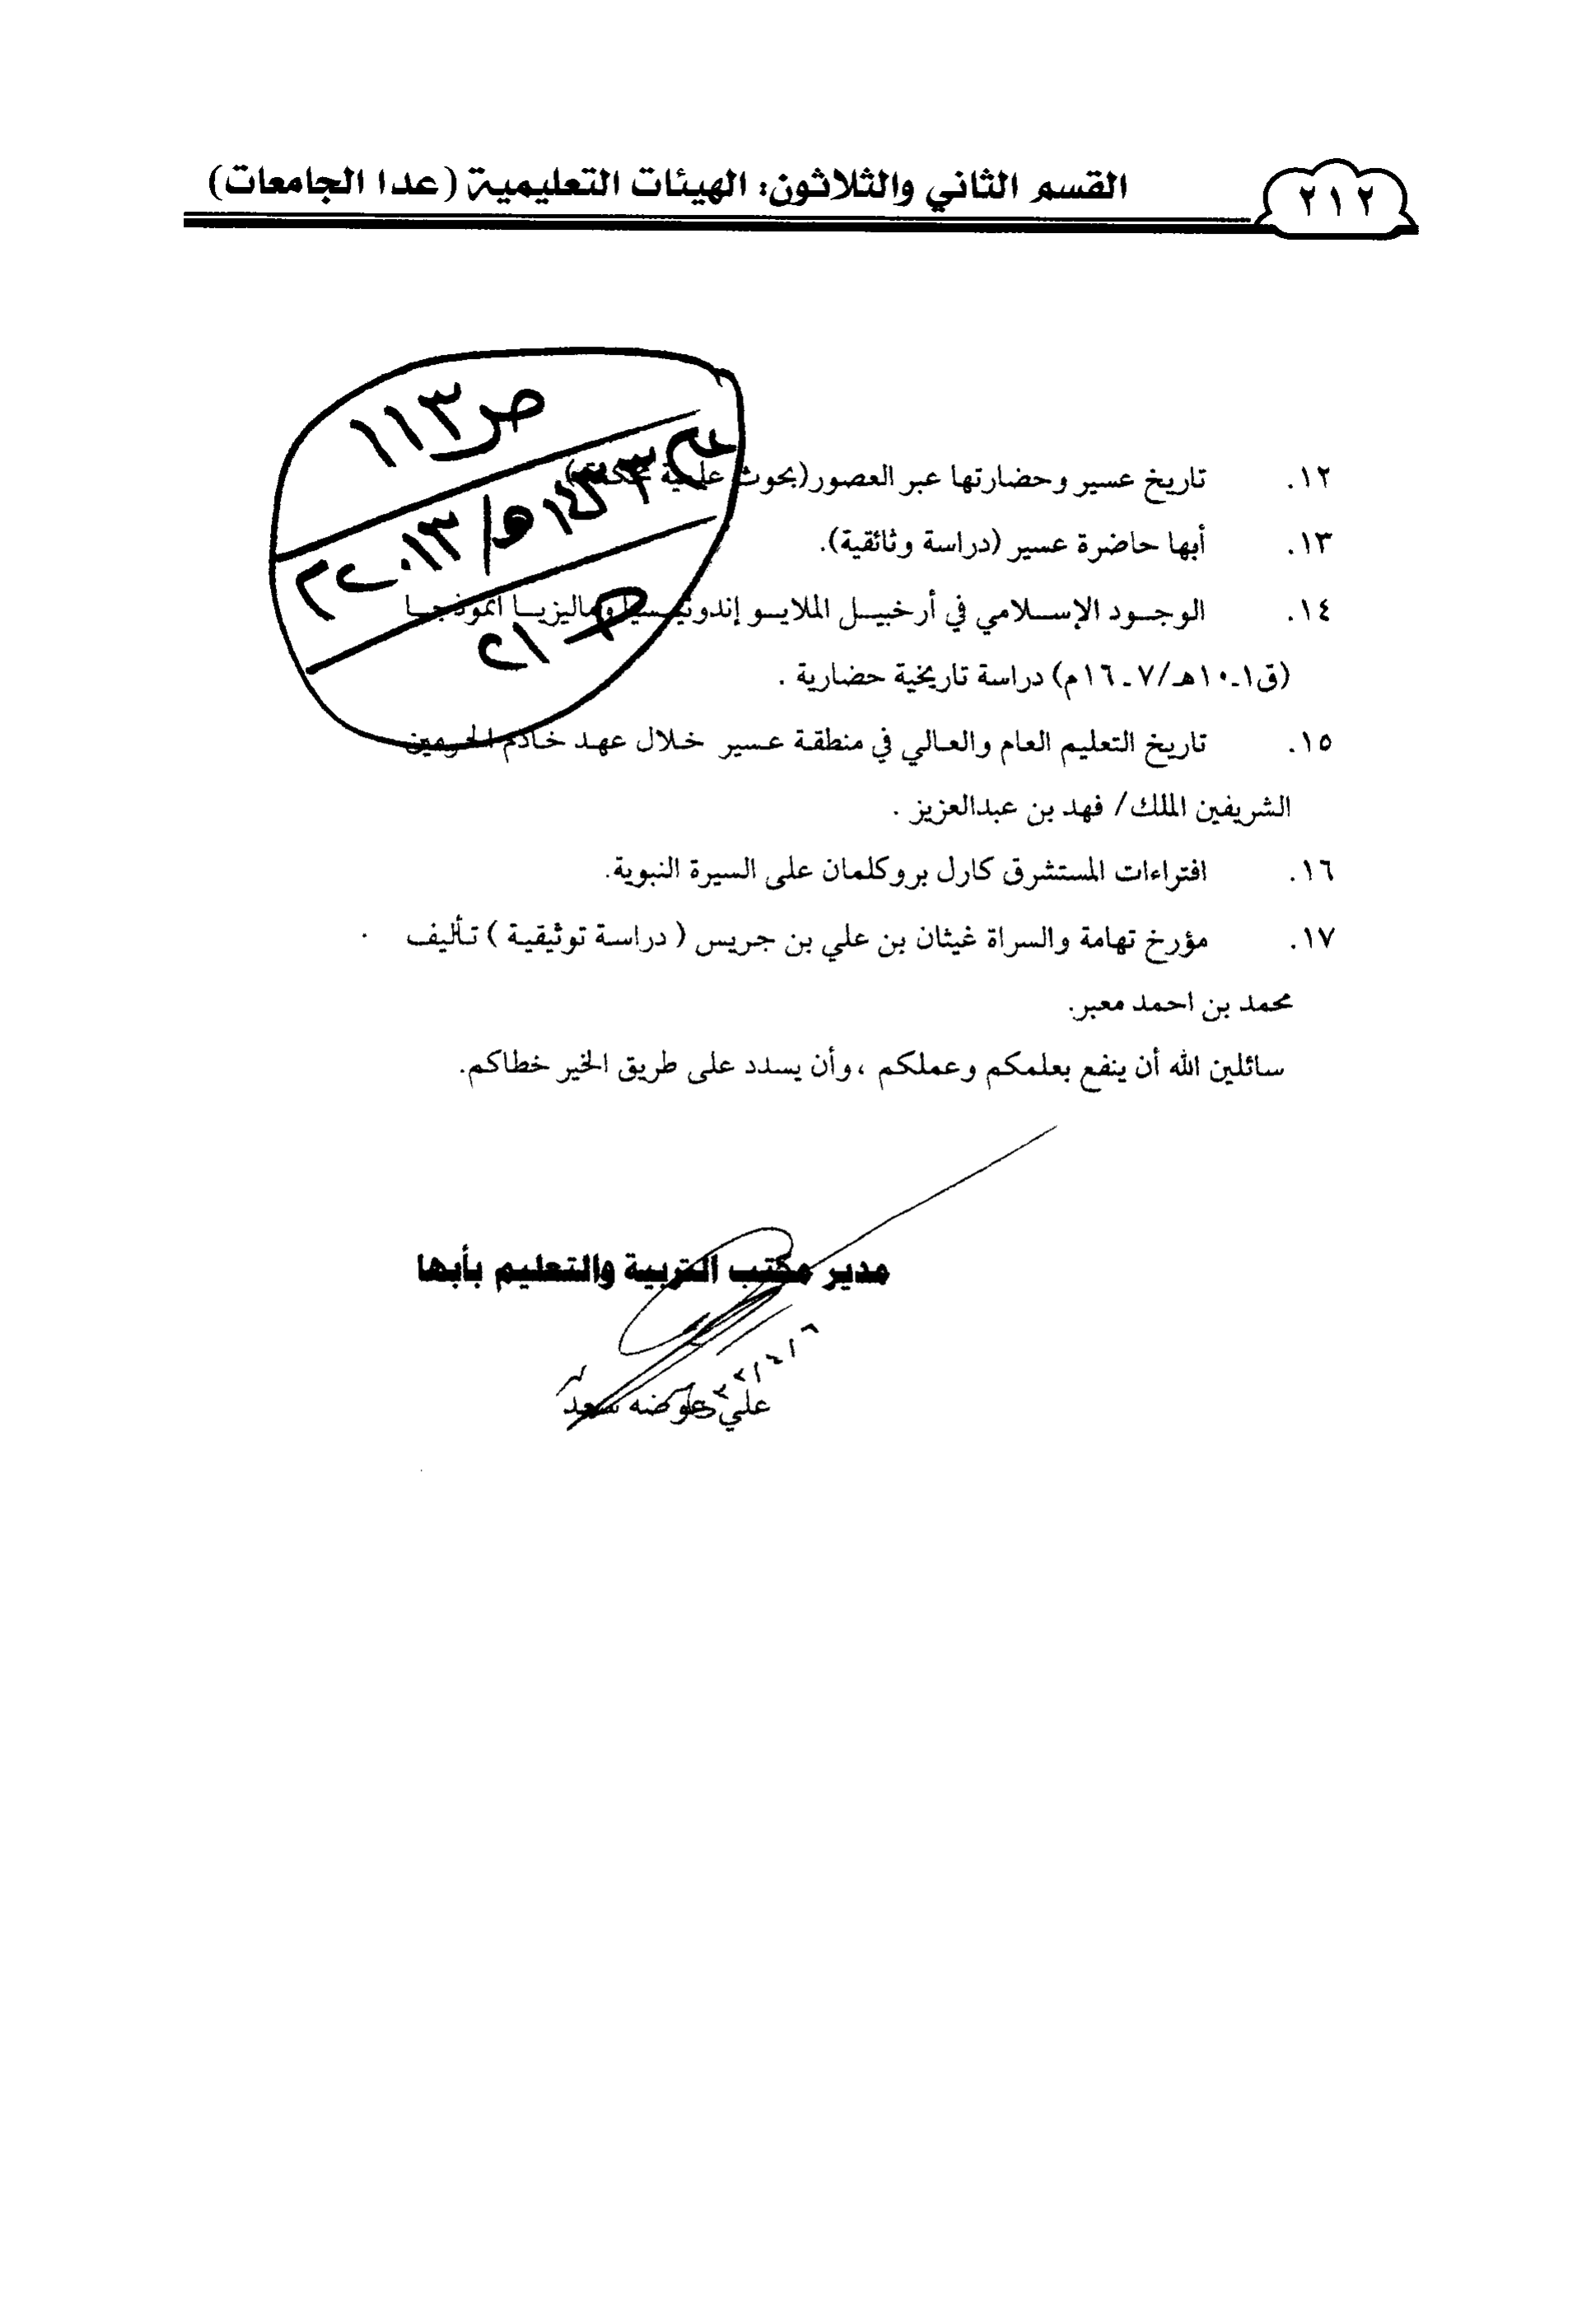 ٢١٢
القسم الثاني والثلاثون: الهيئات التعليمية (عدا الجامعات)
ص ١١٣
عام ١٤٣٣هـ/٢٠١٣م
ص ٢١
١٢. تاريخ عسير وحضارتها عبر العصور(بحوث علمية محكمة)
١٣. أبها حاضرة عسير (دراسة وثائقية).
١٤. الوجود الإسلامي في أرخبيل الملايو إندونيسيا وماليزيا أنموذجا
(ق١ـ١٠هـ/٧ـ١٦م) دراسة تاريخية حضارية .
١٥. تاريخ التعليم العام والعالي في منطقة عسير خلال عهد خادم الحرمين
الشريفين الملك/ فهد بن عبدالعزيز .
١٦. افتراءات المستشرق كارل بروكلمان على السيرة النبوية.
١٧. مؤرخ تهامة والسراة غيثان بن علي بن جريس ( دراسة توثيقية ) تأليف
محمد بن احمد معبر.
سائلين الله أن ينفع بعلمكم وعملكم ، وأن يسدد على طريق الخير خطاكم.
مدير مكتب التربية والتعليم بأبها
علي عوضه سعد